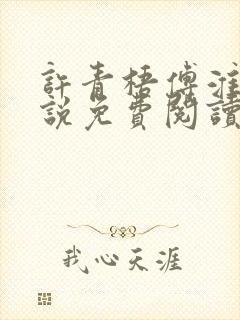 許青梧傅淮
說免費閱讀
我心天涯